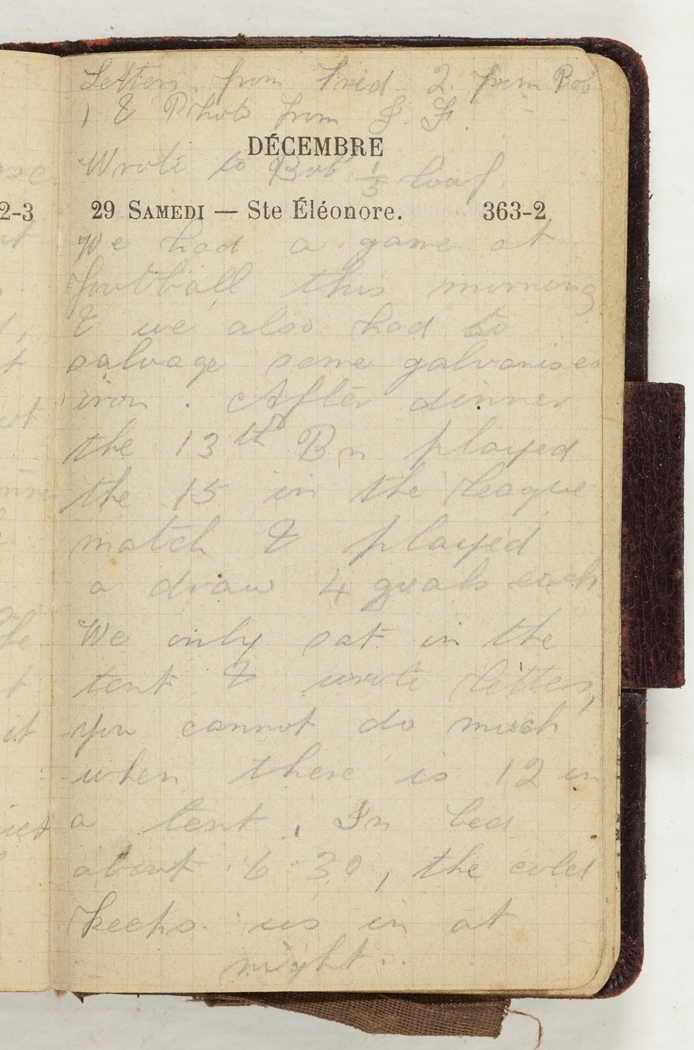 Letters from Fred 2 from Bob
1 & Photo from J. F.
DÉCEMBRE
Wrote to Bob 1/3 loaf.
29 SAMEDI — Ste Éléonore. 363-2
We had a game at
football this morning
& we also had to
salvage some galvanised
iron. After dinner
the 13th Bn played
the 15 in the league
match & played
a draw 4 goals each
We only sat in the
tent & wrote letters,
you cannot do much
when there is 12 in
a tent. In bed
about 6-30, the cold
keeps us in at
night.